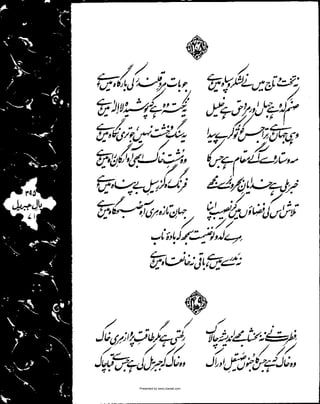 نہ تخت و تاج میں نے لشکر و سپاہ میں ہے جو بات مردِ قلندر کی بارگاہ میں ہے
صنم کدہ ہے جہاں اور مردِ حق ہے خلیل یہ نکتہ وہ ہے کہ پوشیدہ لا الٰہ میں ہے
وہی جہاں ہے ترا جس کو تو کرے پیدا یہ سنگ و خشت نہیں جو تری نگاہ میں ہے
مہ و ستارہ سے آگے مقام ہے جس کا وہ مشتِ خاک ابھی آوارگانِ راہ میں ہے
خبر ملی ہے خدایانِ بحر و بر سے مجھے فرنگ رہ گزرِ سیلِ بے پناہ میں ہے
تلاش اس کی فضاؤں میں کر نصیب اپنا جہانِ تازہ مری آہِ صبح گاہ میں ہے
مرے کدو کو غنیمت سمجھ کہ بادۂ ناب
نہ مدرسے میں ہے باقی نہ خانقاہ میں ہے
بالِ جبریل
۷۱
فطرت نے نہ بخشا مجھے اندیشۂ چالاک رکھتی ہے مگر طاقتِ پرواز مری خاک
وہ خاک کہ ہے جس کا جنوں صیقلِ ادراک وہ خاک کہ جبریل کی ہے جس سے قبا چاک
Presented by www.iqbalcyberlibrary.net